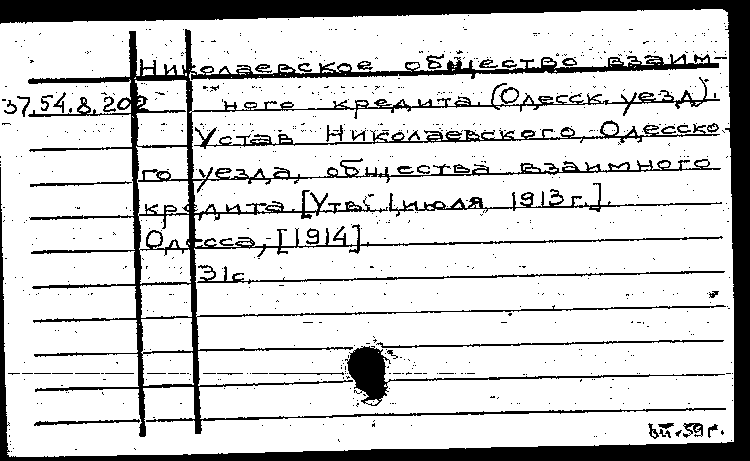 Николаевское общество взаим-
37.54.8.202 ного кредита. (Одесск. уезд).
Устав Николаевского, Одесско-
го уезда, общества взаимного
кредита. [Утв. 1 июля 1913 г.].
Одесса, [1914].
31 с.
59 г.